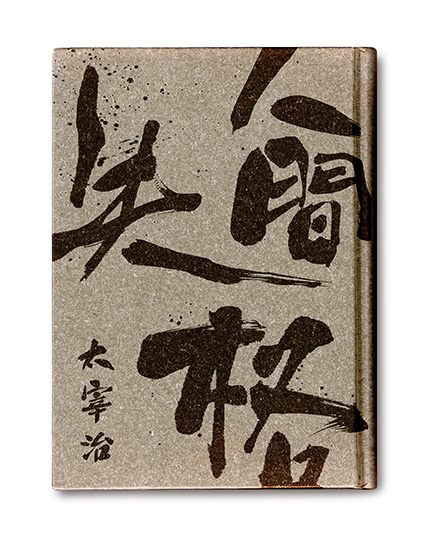 人間
失格
太宰治